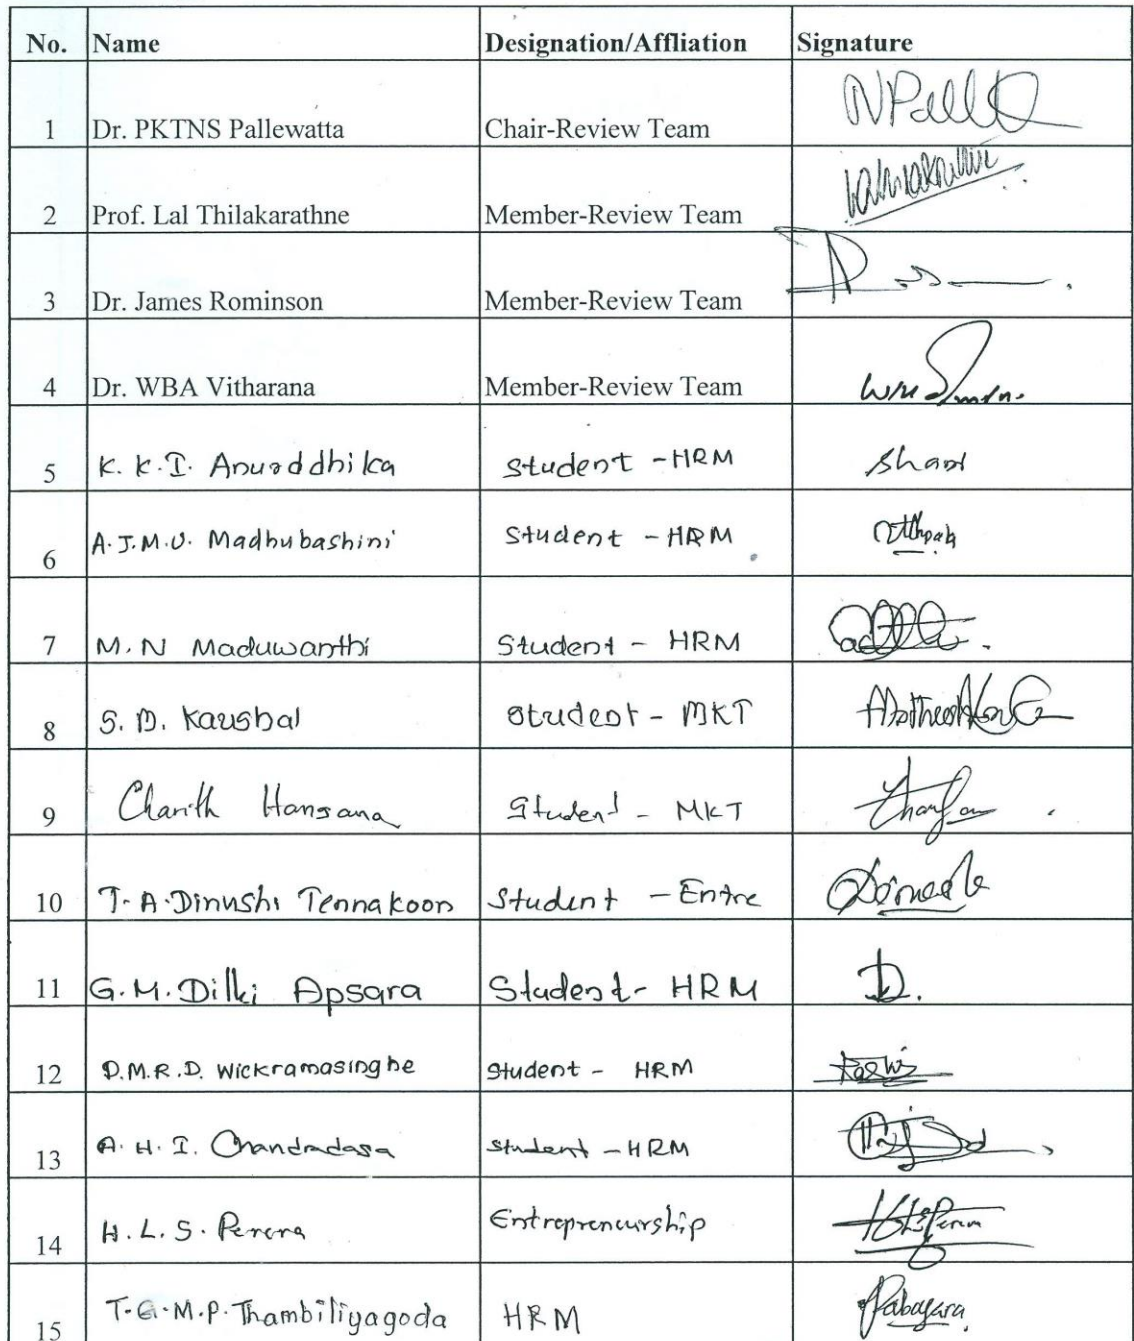 No. Name Designation/Affliation Signature
1 Dr. PKTNS Pallewatta Chair-Review Team
2 Prof. Lal Thilakarathne Member-Review Team
3 Dr. James Rominson Member-Review Team
4 Dr. WBA Vitharana Member-Review Team
5 K. K. I. Anuraddhika Student - HRM
6 A. J. M. U. Madhubashini Student - HRM
7 M. N Maduwanthi Student - HRM
8 S. D. Kaushal Student - MKT
9 Charith Hansana Student - MKT
10 T. A. Dinushi Tennakoon Student - Entre
11 G. M. Dilki Apsara Student - HRM
12 D.M.R.D. Wickramasinghe Student - HRM
13 A. H. I. Chandradasa Student - HRM
14 H. L. S. Perera Entrepreneurship
15 T. G. M. P. Thambiliyagoda HRM Pabasara